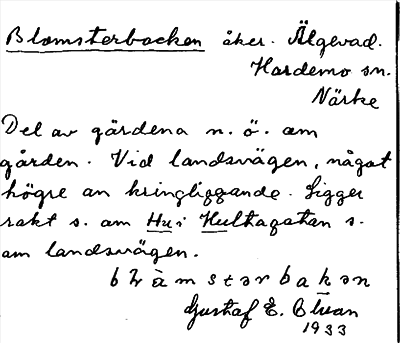 Blomsterbacken åker. Älgevad.
Hardemo sn.
Närke
Del av gärdena n. ö. om
gården. Vid landsvägen, något
högre än kringliggande. Ligger
rakt s. om Hu i Hultagatan s.
om landsvägen.
Gustaf E. 
1933